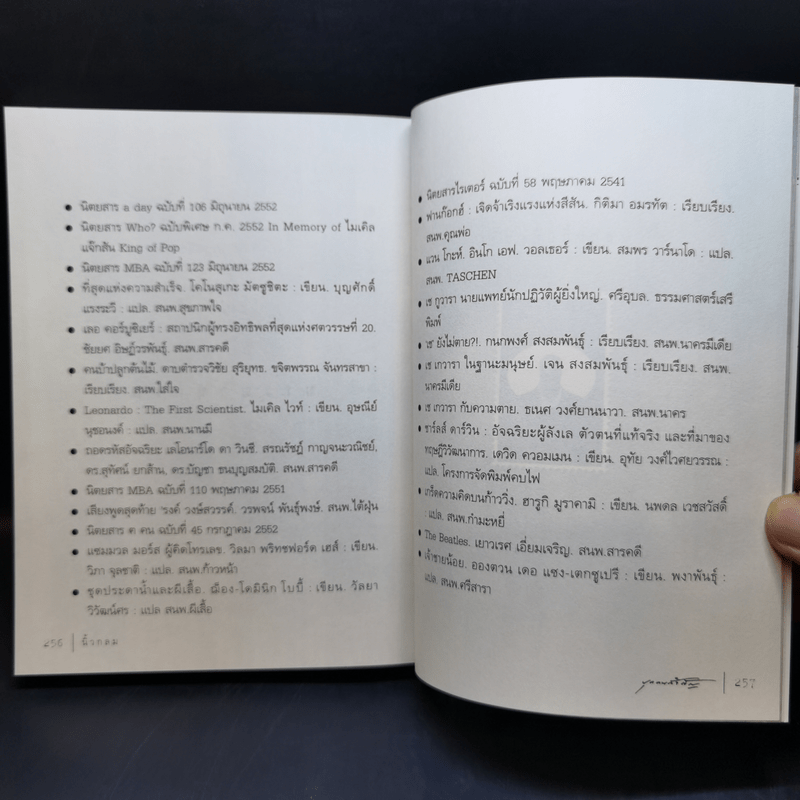 นิตยสาร a day ฉบับที่ 106 มิถุนายน 2552
นิตยสาร Who? ฉบับพิเศษ ก.ค. 2552 In Memory of ไมเคิล
แจ๊กสัน King of Pop
นิตยสาร MBA ฉบับที่ 123 มิถุนายน 2552
ที่สุดแห่งความสำเร็จ. โคโนสุเกะ มัตซูชิตะ : เขียน. บุญศักดิ์
แรงระวี : แปล. สนพ.สุขภาพใจ
เลอ คอร์บูซิเยร์ : สถาปนิกผู้ทรงอิทธิพลที่สุดแห่งศตวรรษที่ 20.
ชัยยศ อิษฎ์วรพันธุ์. สนพ.สารคดี
คนบ้าปลูกต้นไม้. ดาบตำรวจวิชัย สุริยุทธ. ขจิตพรรณ จันทรสาขา :
เรียบเรียง. สนพ.ใส่ใจ
Leonardo : The First Scientist. ไมเคิล ไวท์ : เขียน. อุษณีย์
นุชอนงค์ : แปล. สนพ.นานมี
ถอดรหัสอัจฉริยะ เลโอนาร์โด ดา วินชี. สรณรัชฎ์ กาญจนะวณิชย์,
ดร.สุทัศน์ ยกส้าน, ดร.บัญชา ธนบุญสมบัติ. สนพ.สารคดี
นิตยสาร MBA ฉบับที่ 110 พฤษภาคม 2551
เสียงพูดสุดท้าย รงค์ วงษ์สวรรค์. วรพจน์ พันธุ์พงษ์. สนพ.ไต้ฝุ่น
นิตยสาร ค คน ฉบับที่ 45 กรกฎาคม 2552
แซมมวล มอร์ส ผู้คิดโทรเลข. วิลมา พริทชฟอร์ด เฮส์ : เขียน.
วิภา จุลชาติ : แปล. สนพ.ก้าวหน้า
ชุดประดาน้ำและผีเสื้อ. ฌ็อง-โดมินิก โบบี้ : เขียน. วัลยา
วิวัฒน์ศร : แปล สนพ.ผีเสื้อ
256 | นิ้วกลม
นิตยสารไรเตอร์ ฉบับที่ 58 พฤษภาคม 2541
ฟานก๊อกฮ์ : เจิดจ้าเริงแรงแห่งสีสัน. กิติมา อมรทัต : เรียบเรียง.
สนพ.คุณพ่อ
แวน โกะห์. อินโก เอฟ. วอลเธอร์ : เขียน. สมพร วาร์นาโด : แปล.
สนพ. TASCHEN
เช กูวารา นายแพทย์นักปฏิวัติผู้ยิ่งใหญ่. ศรีอุบล. ธรรมศาสตร์เสรี
พิมพ์
'เช' ยังไม่ตาย?!. กนกพงศ์ สงสมพันธุ์ : เรียบเรียง. สนพ.นาครมีเดีย
เช เกวารา ในฐานะมนุษย์. เจน สงสมพันธุ์ : เรียบเรียง. สนพ.
นาครมีเดีย
เช เกวารา กับความตาย. ธเนศ วงศ์ยานนาวา. สนพ.นาคร
ชาร์ลส์ ดาร์วิน : อัจฉริยะผู้ลังเล ตัวตนที่แท้จริง และที่มาของ
ทฤษฎีวิวัฒนาการ. เดวิด ควอมเมน : เขียน. อุทัย วงศ์ไวศยวรรณ :
แปล. โครงการจัดพิมพ์คบไฟ
เกร็ดความคิดบนก้าววิ่ง. ฮารูกิ มูราคามิ : เขียน. นพดล เวชสวัสดิ์
: แปล. สนพ.กำมะหยี่
The Beatles. เยาวเรศ เอี่ยมเจริญ. สนพ.สารคดี
เจ้าชายน้อย. อองตวน เดอ แซง-เตกซูเปรี : เขียน. พงาพันธุ์ :
แปล. สนพ.ศรีสารา
| 257